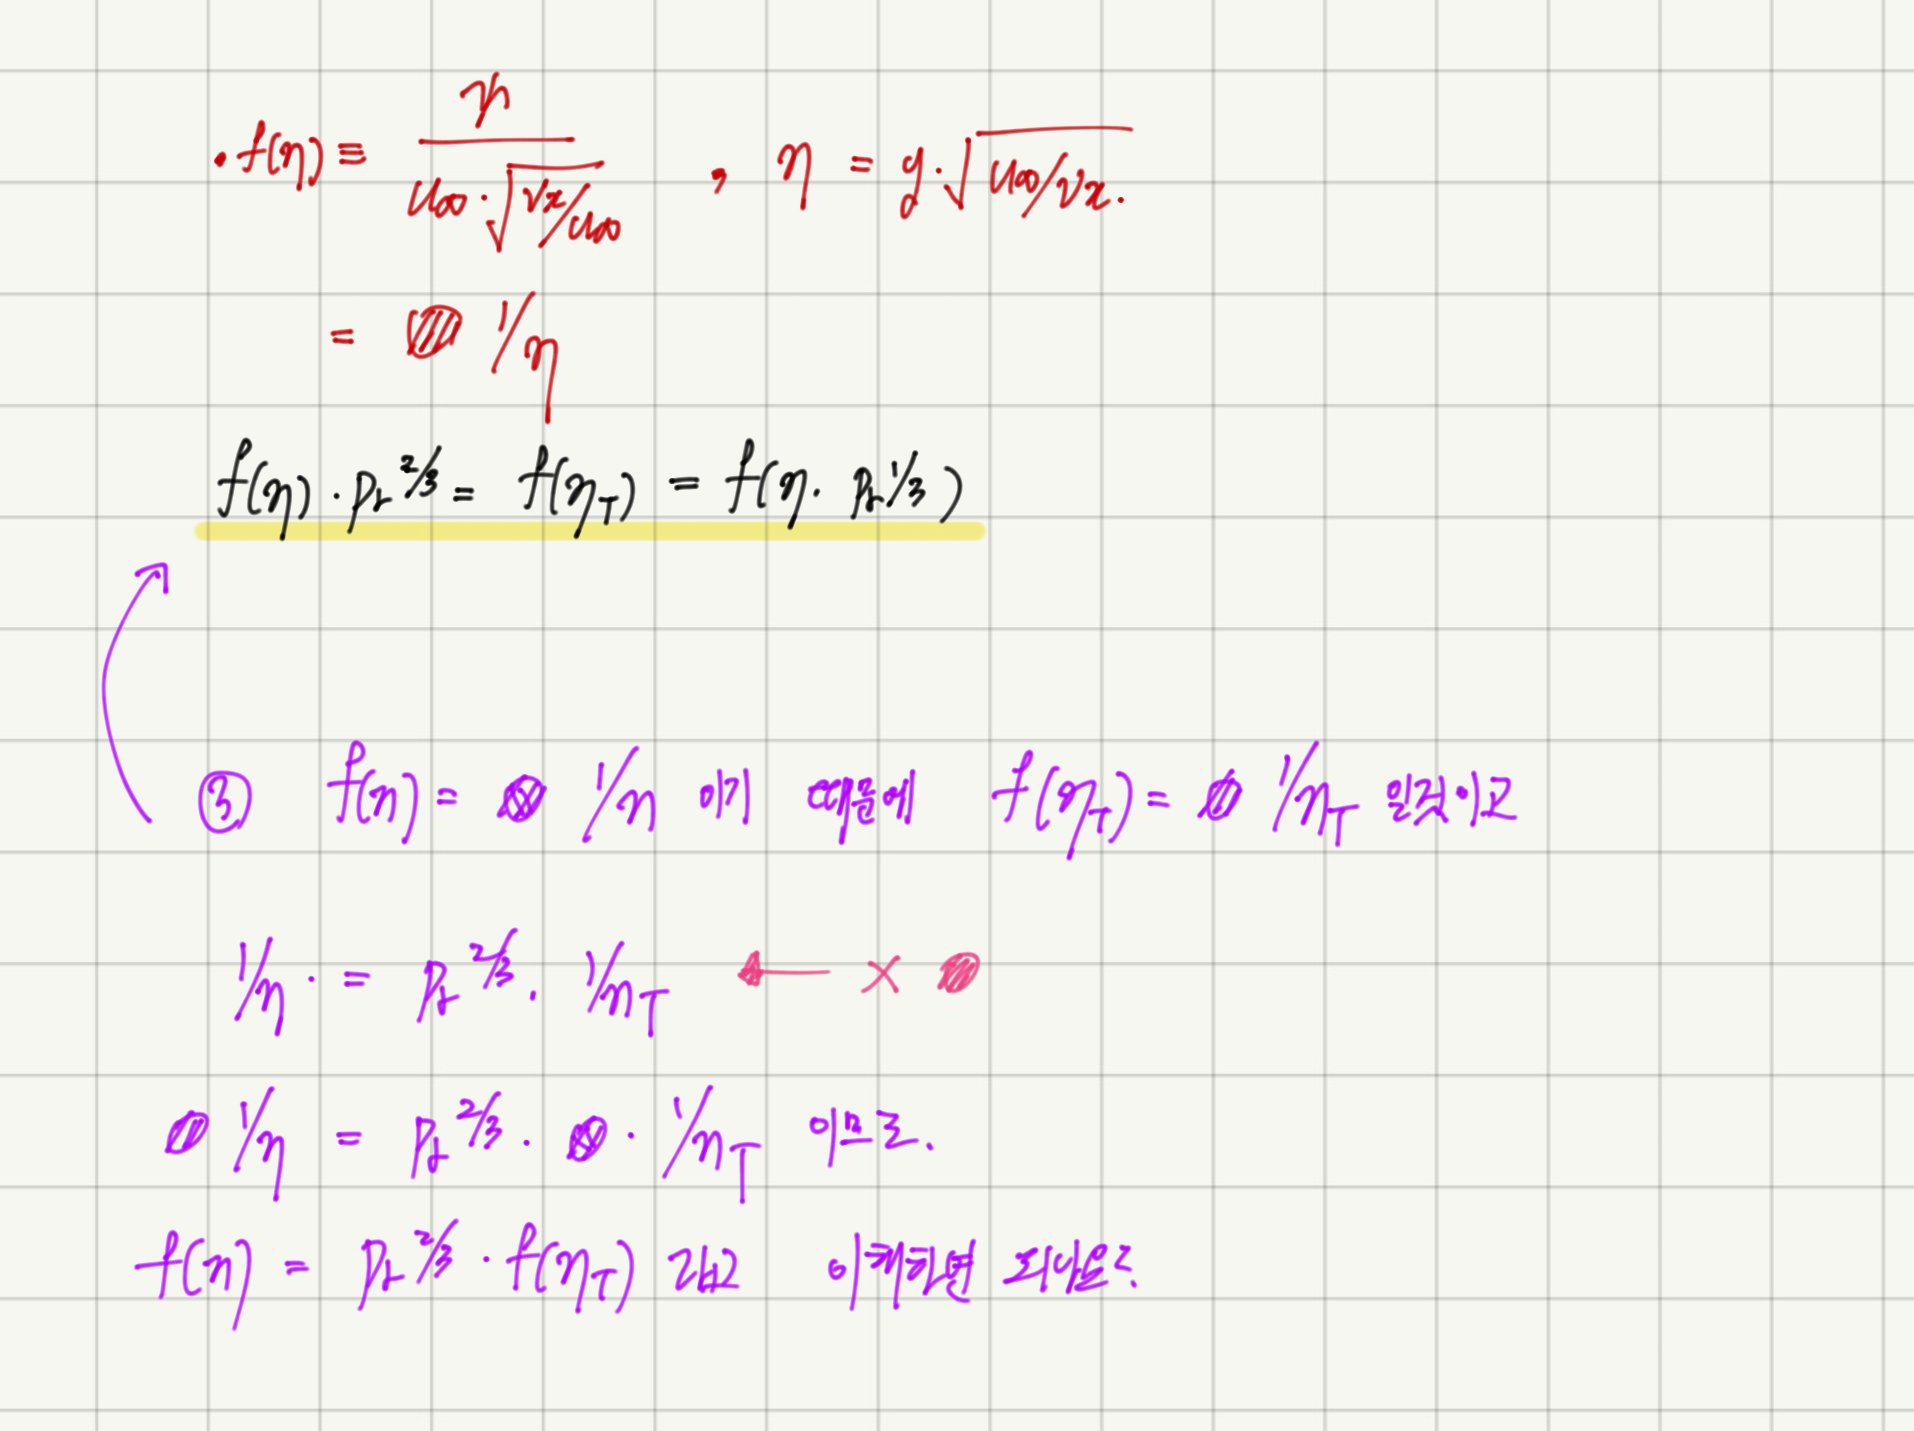 · f(η) ≡ ψ / (u∞ · √(νx/u∞)) , η = y · √(u∞/νx).
= 1/η
f(η) · Pr^2/3 = f(ηT) = f(η · Pr^1/3)
③ f(η) = 1/η 이기 때문에 f(ηT) = 1/ηT 일것이고
1/η · = Pr^2/3 · 1/ηT ← ×
1/η = Pr^2/3 · · 1/ηT 이므로.
f(η) = Pr^2/3 · f(ηT)